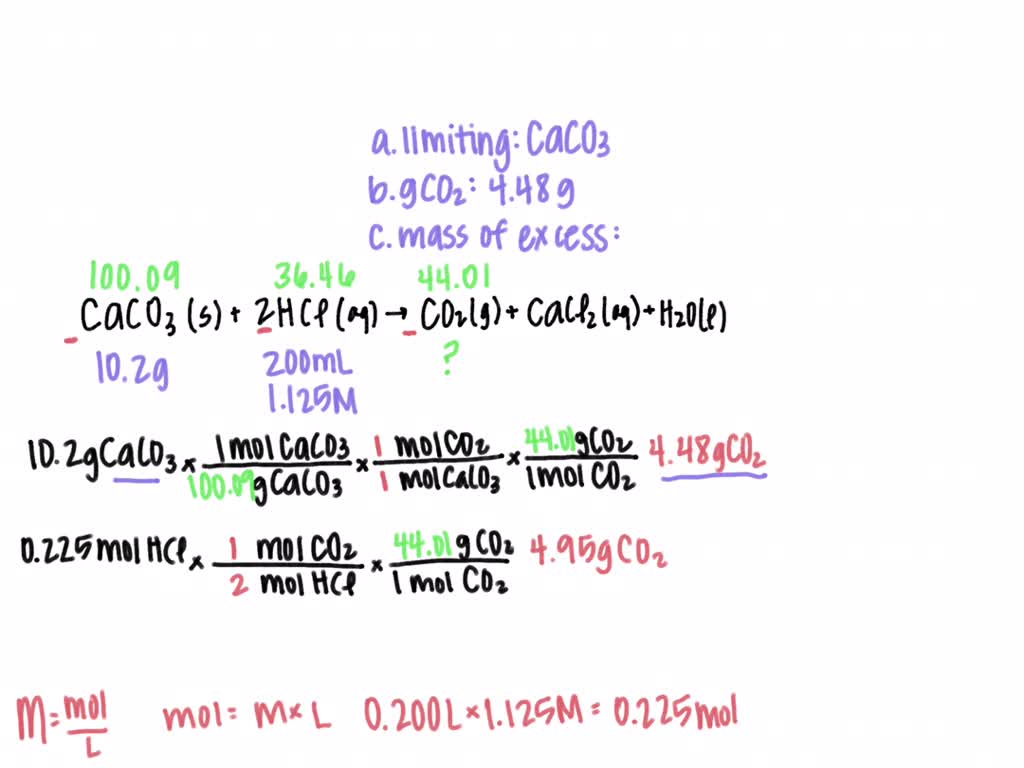 a. limiting: CaCO3
b. gCO2: 4.48g
c. mass of excess:
100.09 36.46 44.01
_CaCO3 (s) + 2HCl (aq) → _CO2(g) + CaCl2(aq) + H2O(l)
10.2g 200mL ?
1.125M
10.2gCaCO3 × 1molCaCO3/100.09gCaCO3 × 1 molCO2/1 molCaCO3 × 44.01gCO2/1molCO2 4.48gCO2
0.225molHCl × 1 molCO2/2 molHCl × 44.01gCO2/1molCO2 4.95gCO2
M=mol/L mol= M×L 0.200L×1.125M=0.225mol